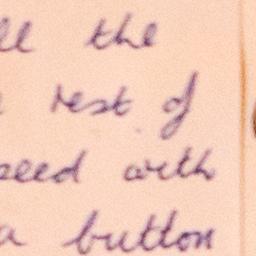 the
rest of
with
a button